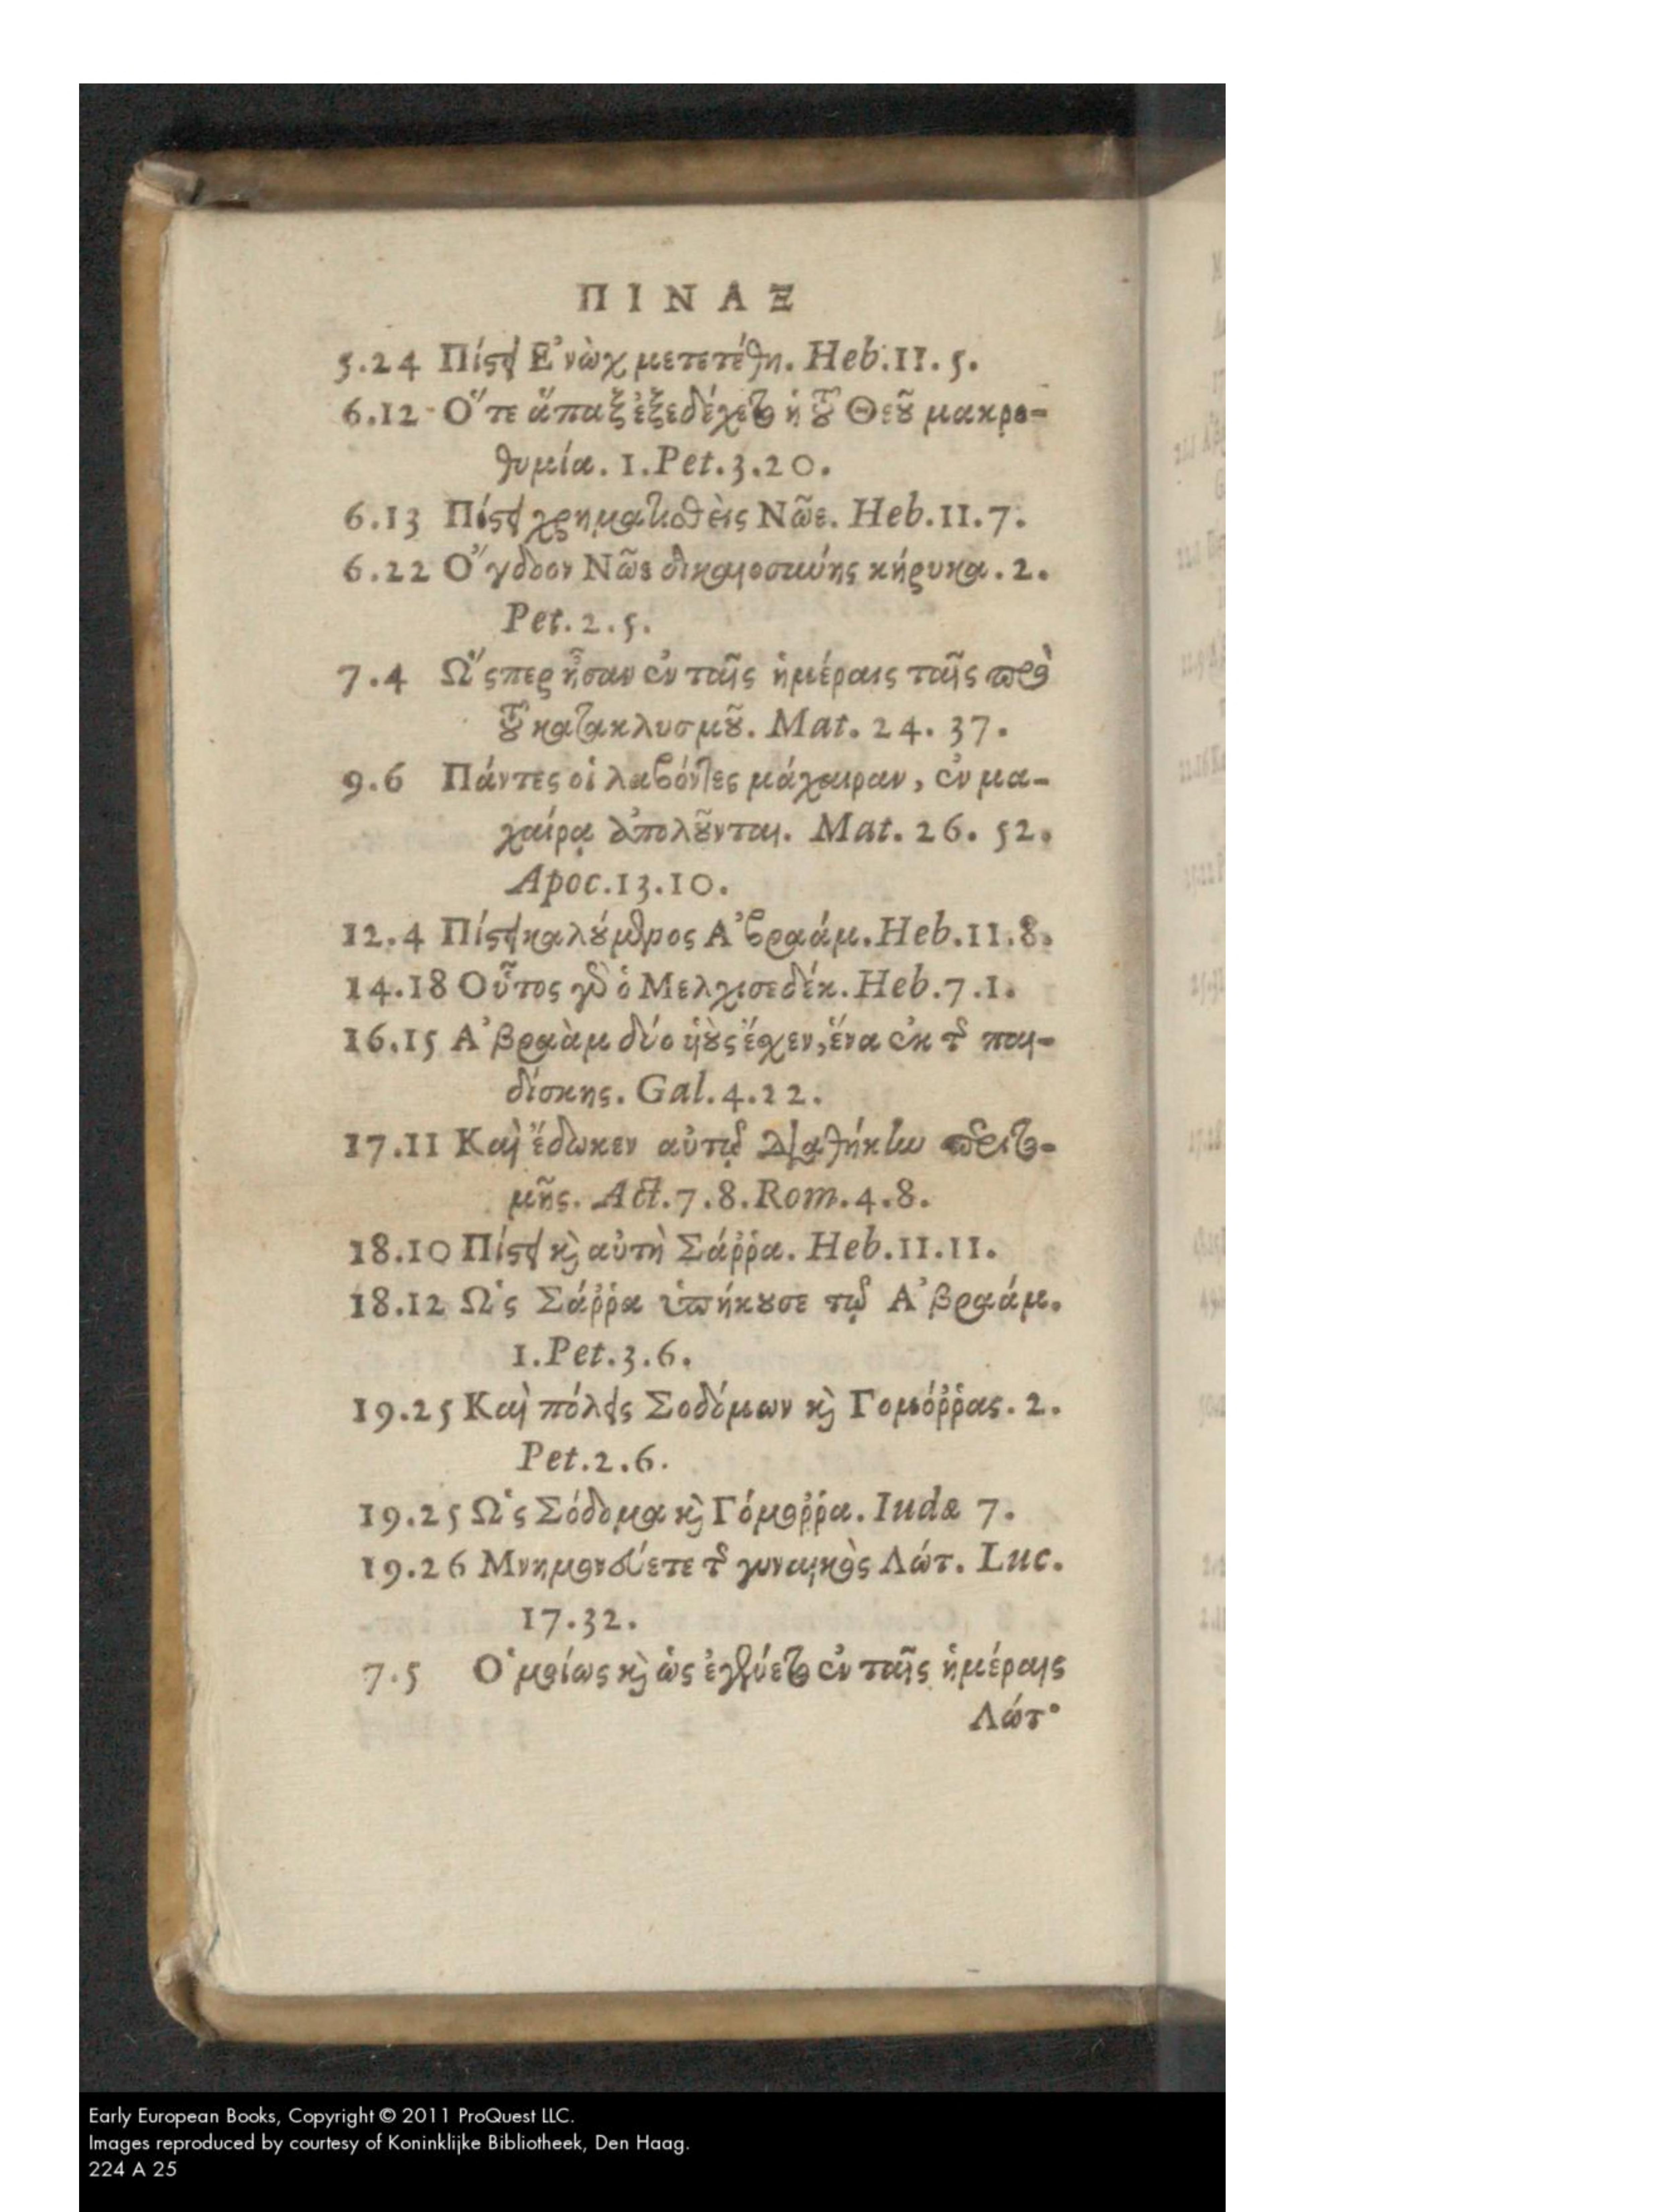 ΠΙΝΑΞ
5.24 Πίστει Ἐνὼχ μετετέθη. Heb.11.5.
6.12 Ὅτε ἅπαξ ἐξεδέχετο ἡ τοῦ Θεοῦ μακρο-
θυμία. 1.Pet.3.20.
6.13 Πίστει χρηματισθεὶς Νῶε. Heb.11.7.
6.22 Ὄγδοον Νῶε δικαιοσύνης κήρυκα. 2.
Pet.2.5.
7.4 Ὥσπερ ἦσαν ἐν ταῖς ἡμέραις ταῖς πρὸ
τοῦ κατακλυσμοῦ. Mat. 24. 37.
9.6 Πάντες οἱ λαβόντες μάχαιραν, ἐν μα-
χαίρᾳ ἀπολοῦνται. Mat. 26. 52.
Apoc.13.10.
12.4 Πίστει καλούμενος Ἀβραάμ. Heb.11.8.
14.18 Οὗτος γὰρ ὁ Μελχισεδέκ. Heb.7.1.
16.15 Ἀβραὰμ δύο υἱοὺς ἔσχεν, ἕνα ἐκ τῆς παι-
δίσκης. Gal.4.22.
17.11 Καὶ ἔδωκεν αὐτῷ διαθήκην περιτο-
μῆς. Act.7.8.Rom.4.8.
18.10 Πίστει καὶ αὐτὴ Σάῤῥα. Heb.11.11.
18.12 Ὡς Σάῤῥα ὑπήκουσε τῷ Ἀβραάμ.
1.Pet.3.6.
19.25 Καὶ πόλεις Σοδόμων καὶ Γομόῤῥας. 2.
Pet.2.6.
19.25 Ὡς Σόδομα καὶ Γόμοῤῥα. Iudæ 7.
19.26 Μνημονεύετε τῆς γυναικὸς Λώτ. Luc.
17.32.
7.5 Ὁμοίως καὶ ὡς ἐγένετο ἐν ταῖς ἡμέραις
Λώτ·
Early European Books, Copyright © 2011 ProQuest LLC.
Images reproduced by courtesy of Koninklijke Bibliotheek, Den Haag.
224 A 25